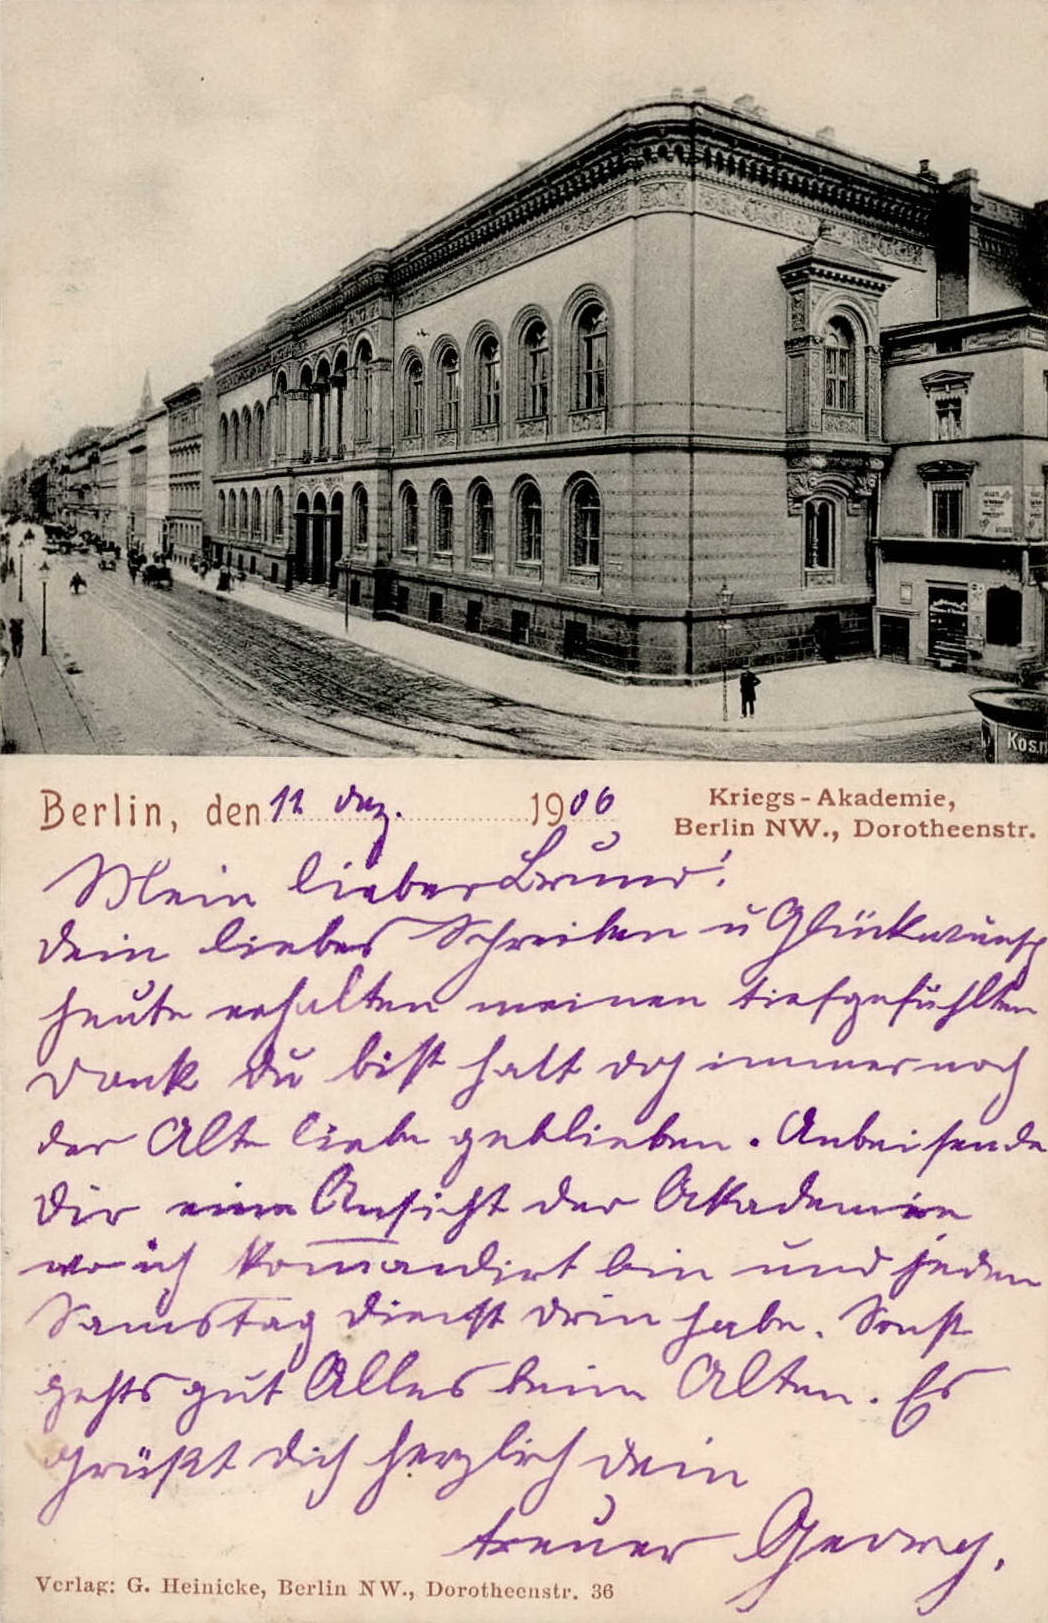 Kos.m
Berlin, den 11 Dez. 1906
Kriegs-Akademie,
Berlin NW., Dorotheenstr.
Mein lieber Bruno!
Dein liebes Schreiben u Glückwunsch
heute erhalten meinen tiefgefühlten
Dank Du bist halt doch immer noch
der Alte liebe geblieben. Anbei sende
Dir eine Ansicht der Akademie
wo ich komandirt bin und jeden
Samstag Dienst drin habe. Sonst
gehts gut Alles beim Alten. Es
grüßt Dich herzlich Dein
treuer Georg.
Verlag: G. Heinicke, Berlin NW., Dorotheenstr. 36